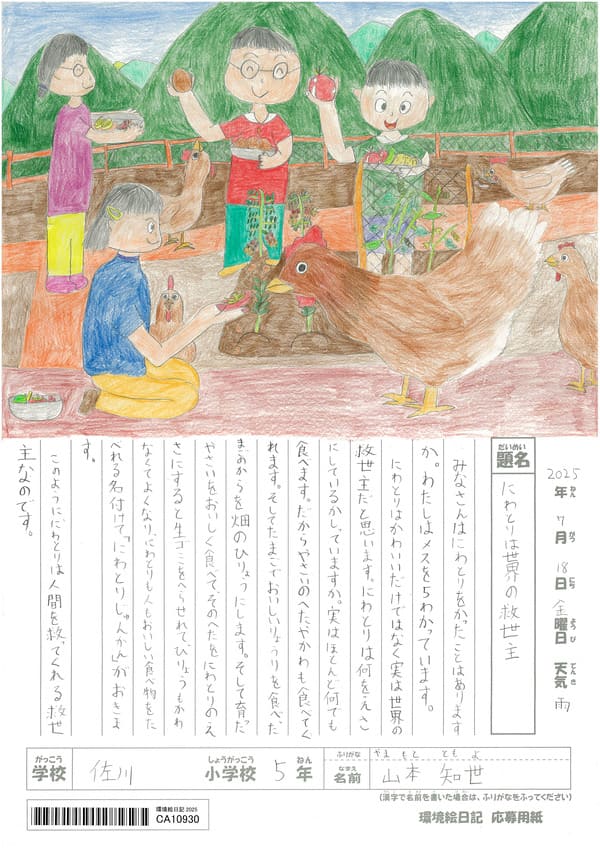 2025年7月18日金曜日 天気 雨
ねん がつ にち ようび てんき
だいめい
題名
にわとりは世界の救世主
みなさんはにわとりをかったことはあります
か。わたしはメスを5わかっています。
にわとりはかわいいだけではなく実は世界の
救世主だと思います。にわとりは何をえさ
にしているかしっていますか。実はほとんど何でも
食べます。だからやさいのへた、やかわも食べてく
れます。そしてたまごでおいしいりょうりを食べた
まごからを畑のひりょうにします。そして育だった
やさいをおいしく食べてそのへたをにわとりのえ
さにすると生ゴミをへらせれてひりょうもかわ
なくてよくなり、にわとりも人もおいしい食べ物をた
べれる名付けて「にわとりじゅんかん」がおきま
す。
このようににわとりは人間を救ってくれる救世
主なのです。
がっこう しょうがっこう ねん
学校 佐川 小学校 5年
ふりがな やま もと とも よ
なまえ
名前 山本 知世
(漢字で名前を書いた場合は、ふりがなをふってください)
環境絵日記 2025
CA10930
環境絵日記 応募用紙